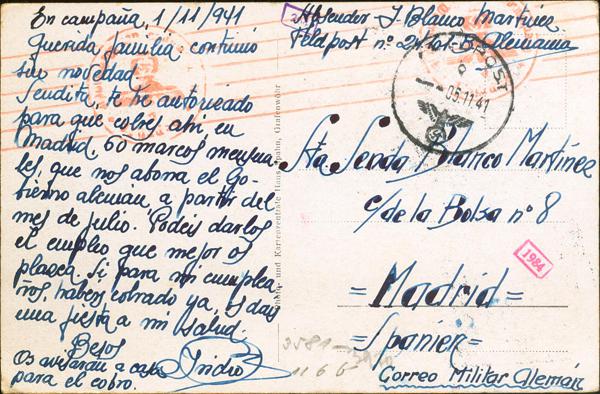 En campaña, 1/11/941
Querida familia continúo
sin novedad.
Sendita, te he autorizado
para que cobres ahí, en
Madrid, 60 marcos mensua-
les, que nos abona el Go-
bierno alemán a partir del
mes de julio. Podéis darlos
el empleo que mejor os
plazca. Si para mi cumplea-
ños, habéis cobrado ya, os dais
una fiesta a mi salud.
Besos
Isidro
Os avisarán a casa
para el cobro.
Absender J. Blanco Martínez
Feldpost nº Alemania
FELDPOST
05.11.41
Srta Senda Blanco Martínez
c/ de la Bolsa nº 8
1984
=Madrid=
=Spanien=
Correo Militar Alemán
Grafenwöhr